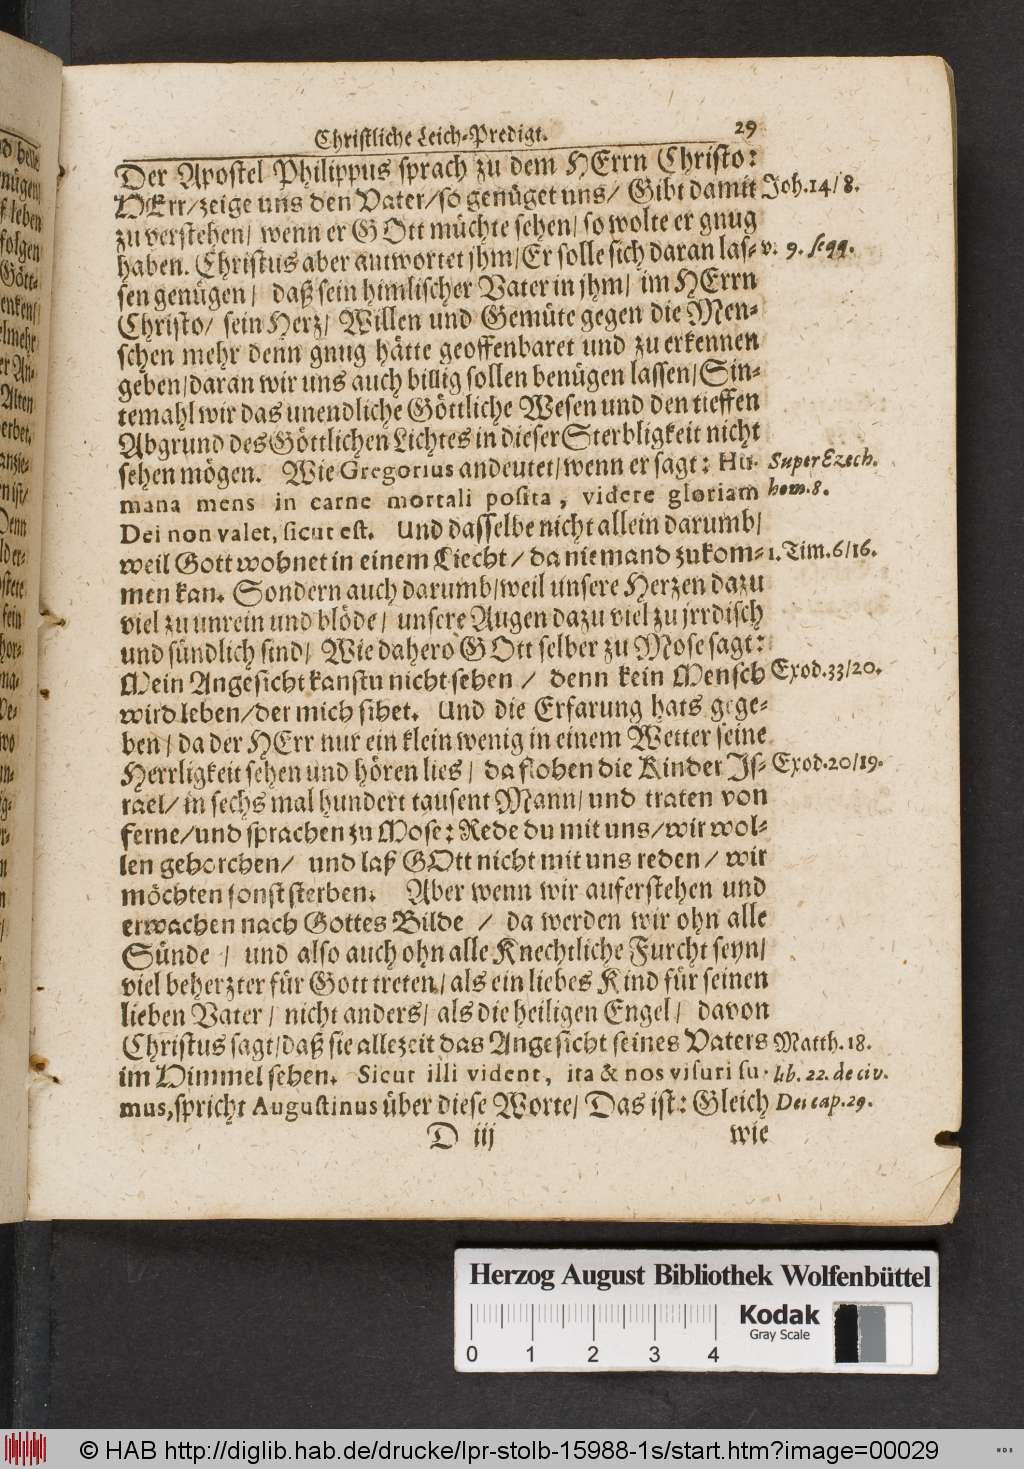 Christliche Leich-Predigt. 29
Der Apostel Philippus sprach zu dem HErrn Christo:
HErr/zeige uns den Vater/so genüget uns/ Gibt damit Joh.14/8.
zu verstehen/ wenn er GOtt müchte sehen/ so wolte er gnug
haben. Christus aber antwortet jhm/Er solle sich daran las- v. 9. seqq.
sen genügen/ daß sein himlischer Vater in jhm/ im HErrn
Christo/ sein Herz/ Willen und Gemüte gegen die Men-
schen mehr denn gnug hätte geoffenbaret und zu erkennen
geben/daran wir uns auch billig sollen benügen lassen/Sin-
temahl wir das unendliche Göttliche Wesen und den tieffen
Abgrund des Göttlichen Lichtes in dieser Sterbligkeit nicht
sehen mögen. Wie Gregorius andeutet/wenn er sagt: Hu- Super Ezech.
mana mens in carne mortali posita, videre gloriam hom.8.
Dei non valet, sicut est. Und dasselbe nicht allein darumb/
weil Gott wohnet in einem Liecht/ da niemand zukom- 1. Tim.6/16.
men kan. Sondern auch darumb/weil unsere Herzen dazu
viel zu unrein und blöde/ unsere Augen dazu viel zu jrrdisch
und sündlich sind/ Wie dahero GOtt selber zu Mose sagt:
Mein Angesicht kanstu nicht sehen/ denn kein Mensch Exod.33/20.
wird leben/der mich sihet. Und die Erfarung hats gege-
ben/ da der HErr nur ein klein wenig in einem Wetter seine
Herrligkeit sehen und hören lies/ da flohen die Kinder Js- Exod.20/19.
rael/ in sechs mal hundert tausent Mann/ und traten von
ferne/und sprachen zu Mose: Rede du mit uns/wir wol-
len gehorchen/ und laß GOtt nicht mit uns reden/ wir
möchten sonst sterben. Aber wenn wir auferstehen und
erwachen nach Gottes Bilde/ da werden wir ohn alle
Sünde/ und also auch ohn alle Knechtliche Furcht seyn/
viel beherzter für Gott treten/ als ein liebes Kind für seinen
lieben Vater/ nicht anders/ als die heiligen Engel/ davon
Christus sagt/daß sie allezeit das Angesicht seines Vaters Matth.18.
im Himmel sehen. Sicut illi vident, ita & nos visuri su- lib. 22. de civ.
mus, spricht Augustinus über diese Worte/ Das ist: Gleich Dei cap.29.
D iij wie
Herzog August Bibliothek Wolfenbüttel
Kodak
Gray Scale
0 1 2 3 4
© HAB http://diglib.hab.de/drucke/lpr-stolb-15988-1s/start.htm?image=00029